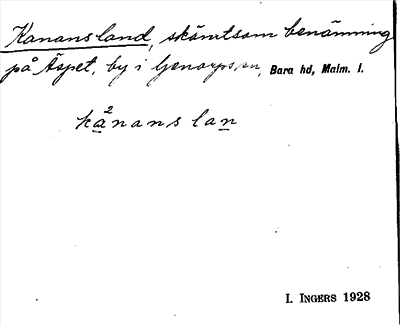 Kanansland, skämtsam benämning
på Äspet, by i Genarps sn, Bara hd, Malm. l.
kånans lan
I. INGERS 1928